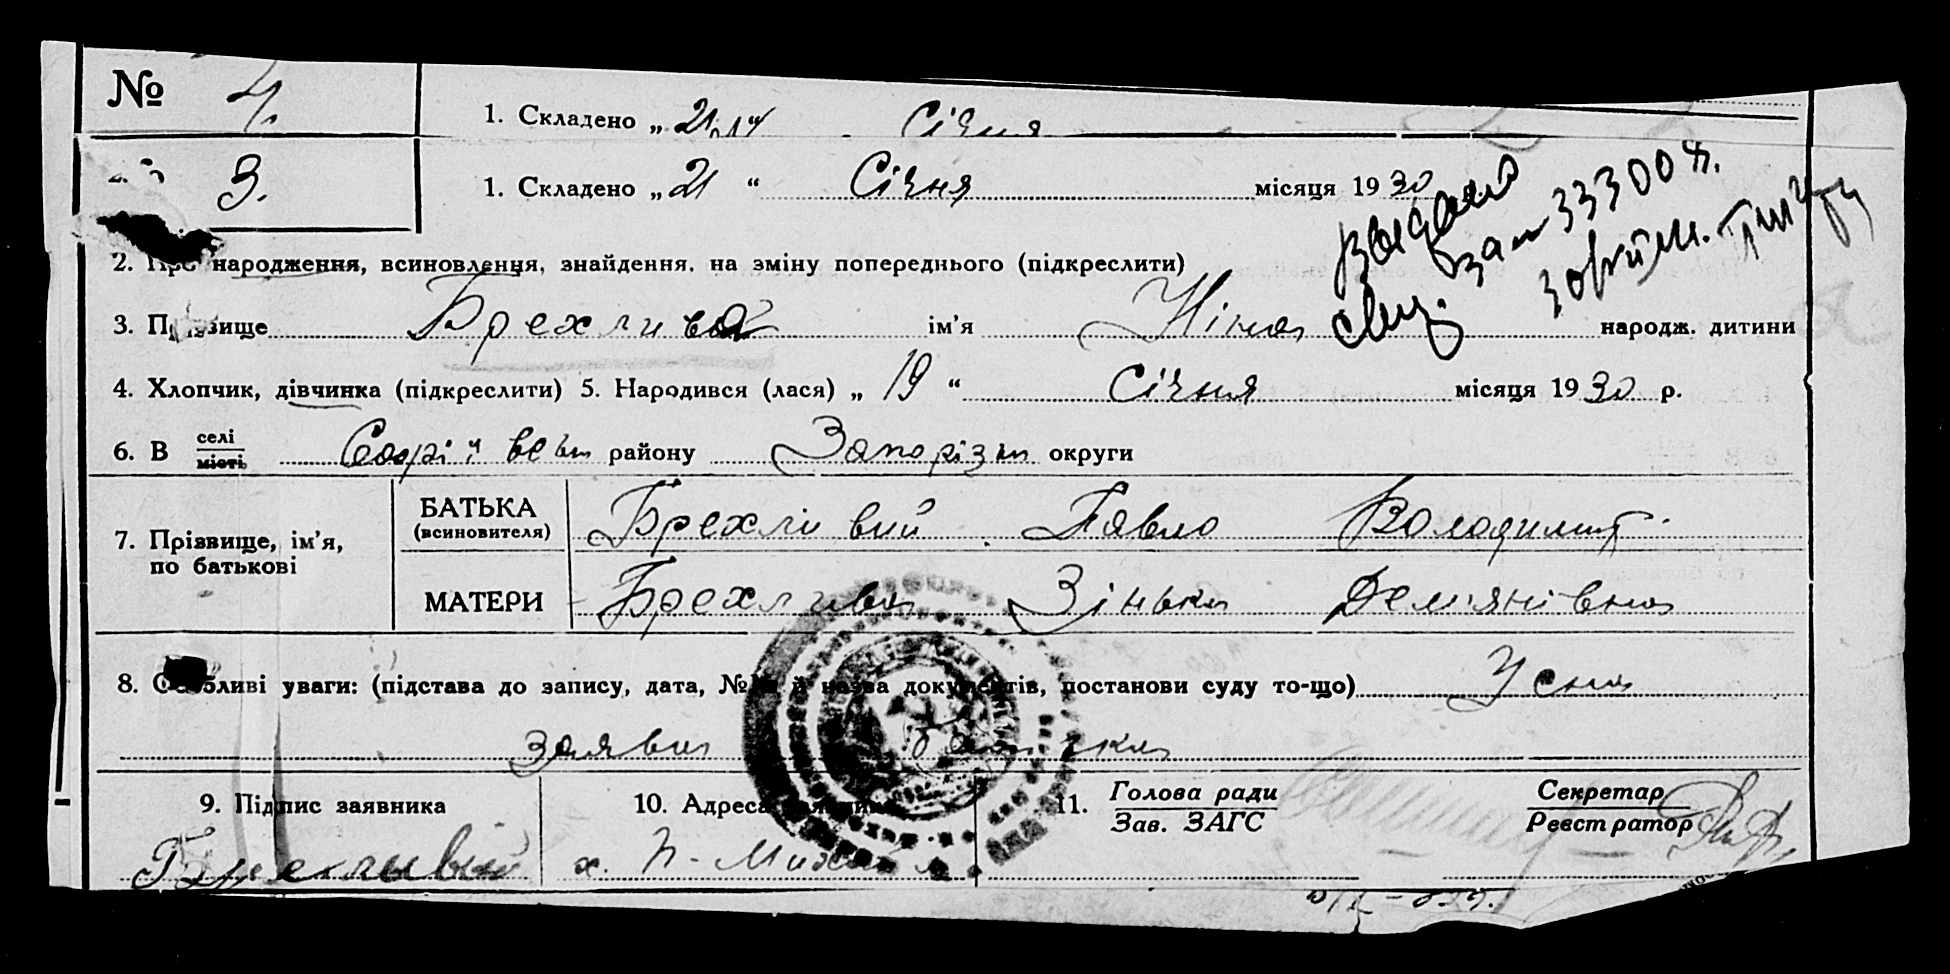 № 4.
1. Складено „ 21 Січня
3.
1. Складено „ 21 “ Січня місяця 19 30
видано
свід. за № 33300
2. Про народження, всиновлення, знайдення, на зміну попереднього (підкреслити)
3. Прізвище Брехлива ім’я Ніна народж. дитини
4. Хлопчик, дівчинка (підкреслити) 5. Народився (лася) „ 19 “ Січня місяця 19 30 р.
6. В селі місті району Запорізьк округи
7. Прізвище, ім’я, по батькові
БАТЬКА (всиновителя) Брехливий Павло Володимир
МАТЕРИ Брехлива Зінька Дем'янівна
8. Особливі уваги: (підстава до запису, дата, №№ й назва документів, постанови суду то-що) Усна
заява батька
9. Підпис заявника
10. Адреса заявника
11. Голова ради Зав. ЗАГС
Секретар Реєстратор
Брехлывій
х.